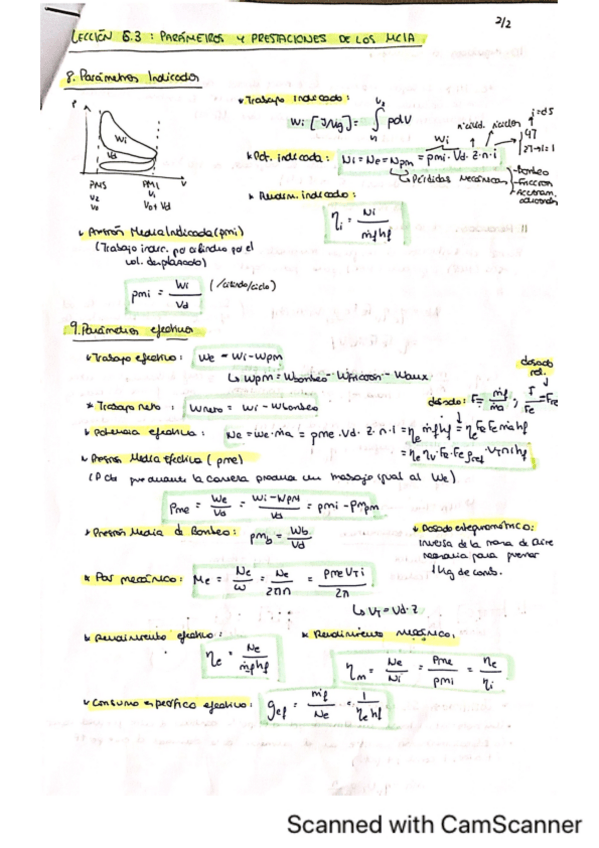 2/2
LECCIÓN 5.3 : PARÁMETROS Y PRESTACIONES DE LOS MCIA
8. Parámetros Indicados
P
Wi
Vd
PMS PMI V
V2 V1
Vo Vo+Vd
Trabajo Indicado:
Wi [J/kg] = ∫ pdV
V2
V1
nºcilind. nºciclos
i=0.5
4T
2T→i=1
Pot. indicada: Ni = Ne = Npm = pmi · Vd · z · n · i
Wi
Pérdidas Mecánicas
- Bombeo
- Fricción
- Accionam.
Rendim. indicado:
ηi = Ni / ṁf hf
Presión Media Indicada (pmi)
(Trabajo indic. por cilindro por el
vol. desplazado)
pmi = Wi / Vd (/cilindro/ciclo)
9. Parámetros efectivos
Trabajo efectivo: We = Wi - Wpm
↳ Wpm = Wbombeo - Wfricción - Waux.
dosado
rel.
Trabajo neto : Wneto = Wi - Wbombeo
dosado: F = ṁf / ṁa ; F / Fe = Fr
Potencia efectiva: Ne = We · ṁa = pme · Vd · z · n · i = ηe ṁf hf = ηe Fr Fe ṁa hf
= ηe ηv Fr · Fe ρref · VT n i hf
Presión Media Efectiva (pme)
(P cte que durante la carrera produce un trabajo igual al We)
Pme = We / Vd = Wi - Wpm / Vd = pmi - Pmpm
Presión Media de Bombeo: pmb = Wb / Vd
Dosado estequiométrico:
Inversa de la masa de aire
necesaria para quemar
1kg de comb.
Par mecánico: Me = Ne / ω = Ne / 2πn = pme VT i / 2π
↳ VT = Vd · z
Rendimiento efectivo :
ηe = Ne / ṁf hf
Rendimiento Mecánico:
ηm = Ne / Ni = Pme / pmi = ηe / ηi
Consumo específico efectivo: gef = ṁf / Ne = 1 / ηe hf
Scanned with CamScanner